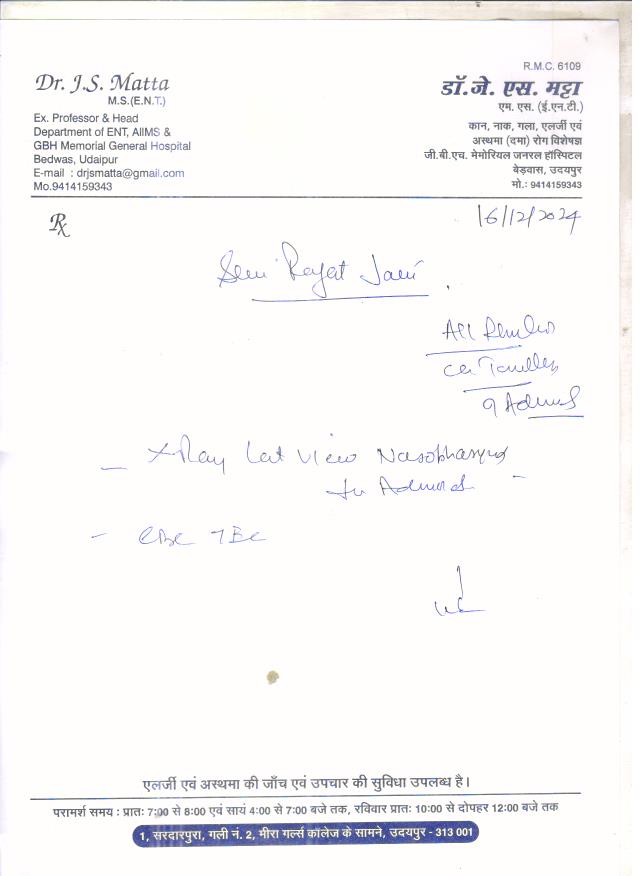 R.M.C. 6109
Dr. J.S. Matta
M.S.(E.N.T.)
Ex. Professor & Head
Department of ENT, AIIMS &
GBH Memorial General Hospital
Bedwas, Udaipur
E-mail : drjsmatta@gmail.com
Mo.9414159343
डॉ.जे. एस. मट्टा
एम. एस. (ई.एन.टी.)
कान, नाक, गला, एलर्जी एवं
अस्थमा (दमा) रोग विशेषज्ञ
जी.बी.एच. मेमोरियल जनरल हॉस्पिटल
बेड़वास, उदयपुर
मो.: 9414159343
Rx
16/12/2024
Rajat
All
- X-Ray Lat View Nasopharynx
- CBC
एलर्जी एवं अस्थमा की जाँच एवं उपचार की सुविधा उपलब्ध है।
परामर्श समय : प्रातः 7:00 से 8:00 एवं सायं 4:00 से 7:00 बजे तक, रविवार प्रातः 10:00 से दोपहर 12:00 बजे तक
1, सरदारपुरा, गली नं. 2, मीरा गर्ल्स कॉलेज के सामने, उदयपुर - 313 001